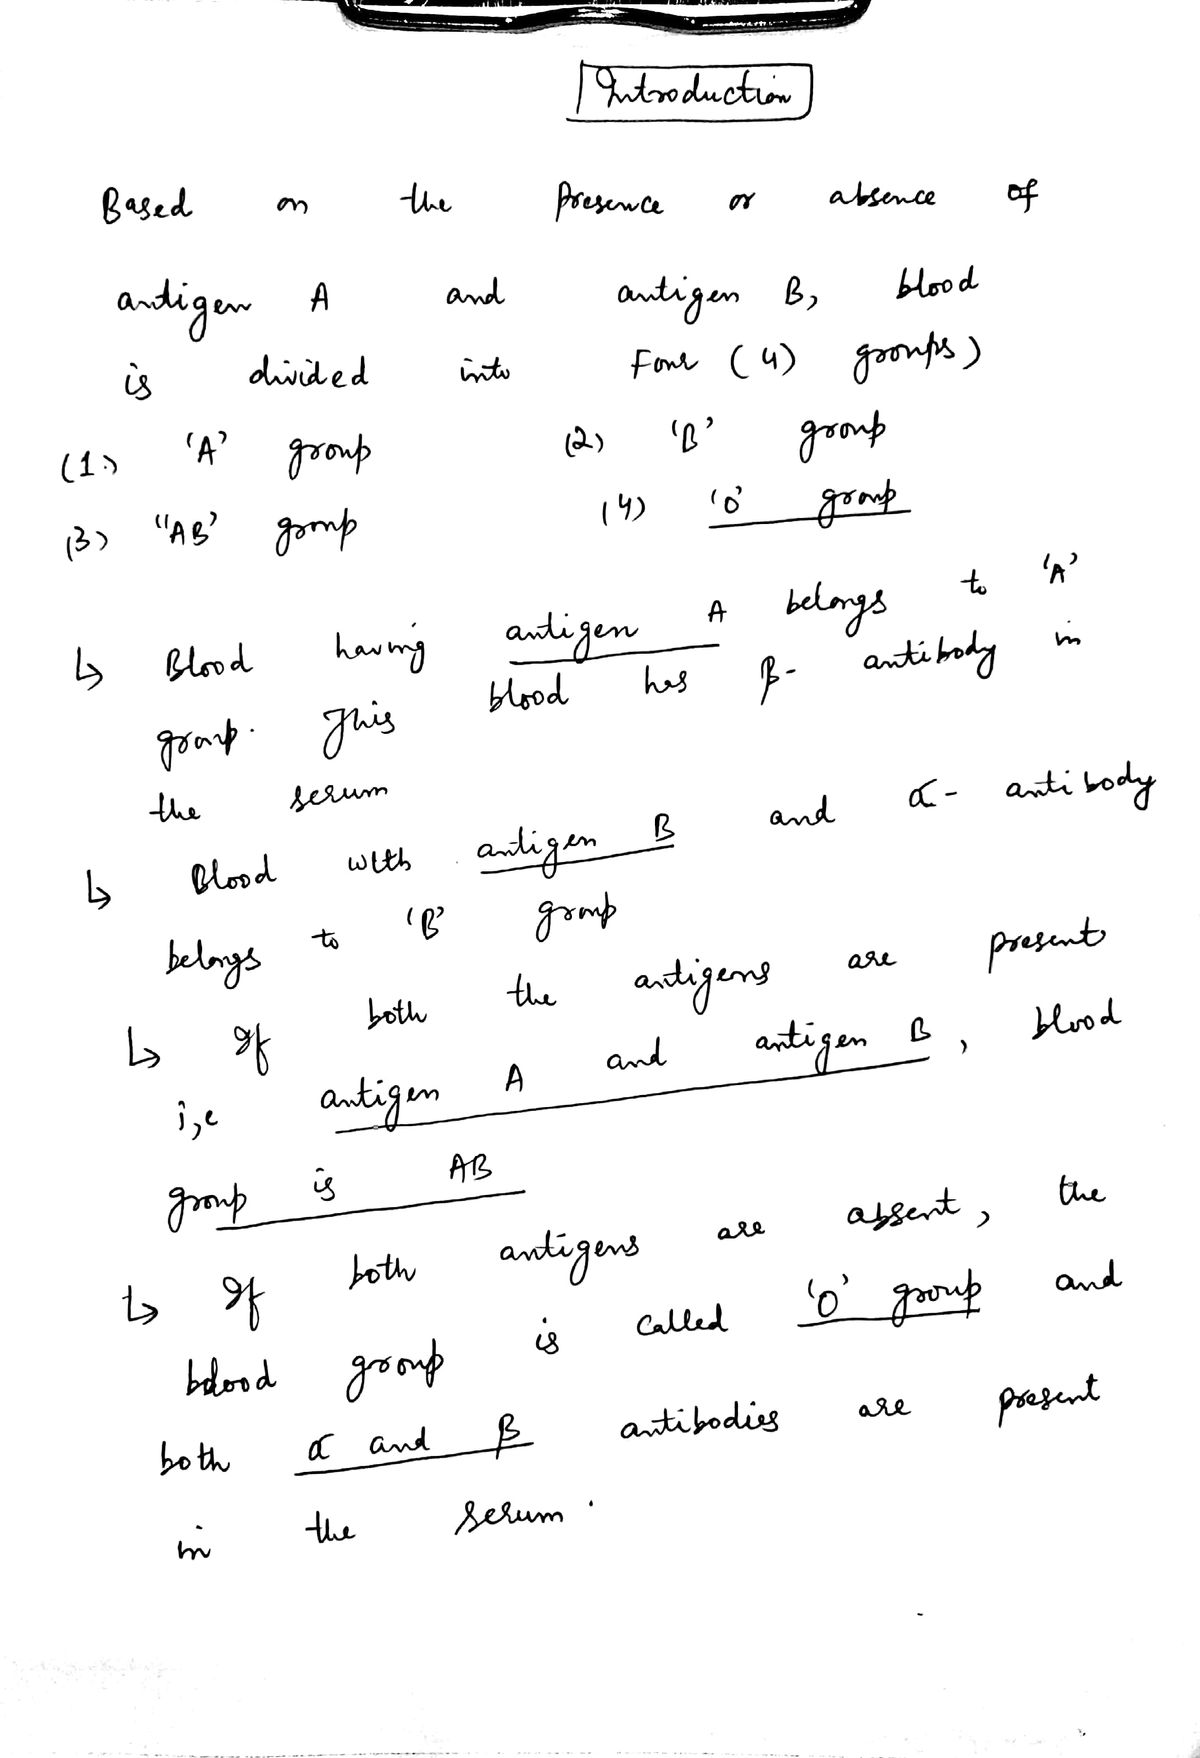 Introduction
Based on the Presence or absence of
antigen A and antigen B, blood
is divided into Four (4) groups)
(1.) 'A' group (2) 'B' group
(3) "AB' group (4) 'O' group
↳ Blood having antigen A belongs to 'A'
group. This blood has β- antibody in
the serum
↳ Blood with antigen B and α- antibody
belongs to 'B' group
↳ If both the antigens are present
i,e antigen A and antigen B, blood
group is AB
↳ If both antigens are absent, the
blood group is called 'O' group and
both α and β antibodies are present
in the serum.